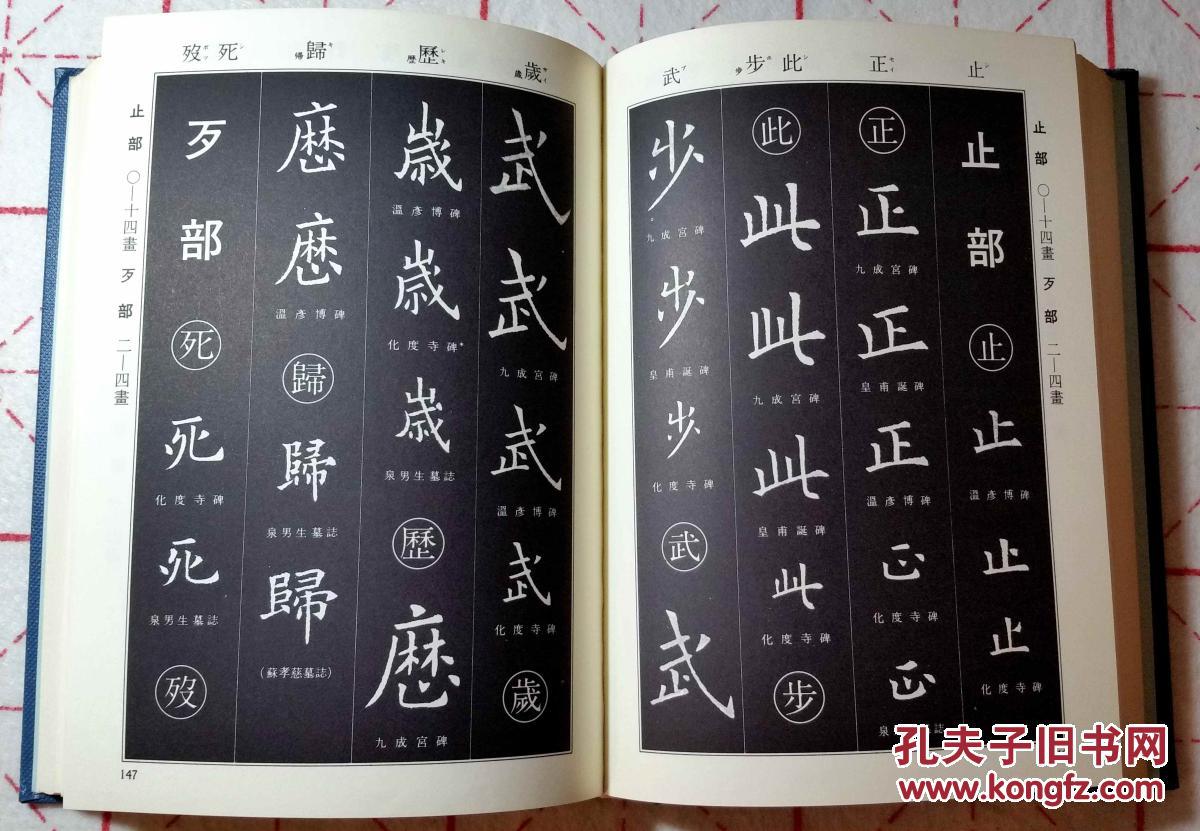 止シ
正セイ
此シ
步ホ 歩
武ブ
止部 〇—十四畫 歹部 二—四畫
止部
止
止
溫彥博碑
止
止
化度寺碑
正
正
九成宮碑
正
皇甫誕碑
正
溫彥博碑
正
化度寺碑
正
泉
誌
此
此
此
九成宮碑
此
皇甫誕碑
此
化度寺碑
步
步
九成宮碑
步
皇甫誕碑
步
化度寺碑
武
武
歲サイ 歳
歷レキ 歴
歸キ 帰
死シ
歿ボツ
武
武
九成宮碑
武
溫彥博碑
武
化度寺碑
歲
歳
溫彥博碑
歳
化度寺碑*
歳
泉男生墓誌
歷
歷
九成宮碑
歷
歷
溫彥博碑
歸
歸
泉男生墓誌
歸
(蘇孝慈墓誌)
歹部
死
死
化度寺碑
死
泉男生墓誌
歿
止部 〇—十四畫 歹部 二—四畫
147
孔夫子旧书网
www.kongfz.com